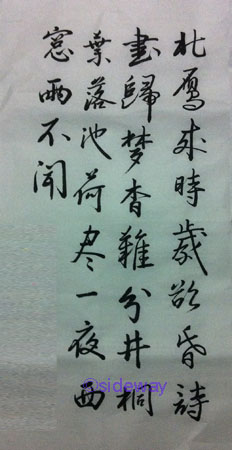 北雁来時歲欲昏詩
書歸梦杳難分井桐
葉落池荷尽一夜西
窓雨不聞
©sideway